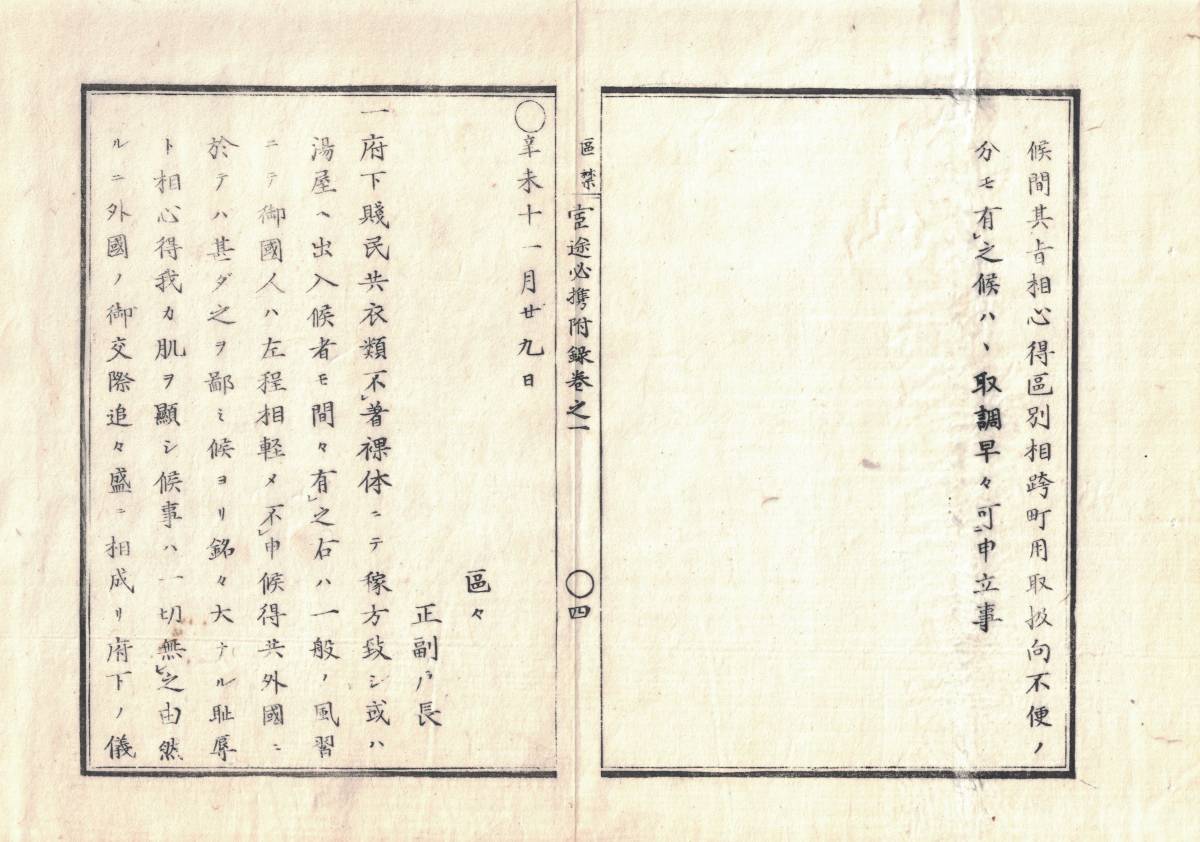 候間其旨相心得區別相跨町用取扱向不便ノ
分モ有レ之候ハヽ取調早々可申立事
區禁
官途必攜附録卷之一
〇四
〇辛未十一月廿九日
區々
正副戸長
一府下賤民共衣類不レ著裸体ニテ稼方致シ或ハ
湯屋ヘ出入候者モ間々有レ之右ハ一般ノ風習
ニテ御國人ハ左程相軽メ不レ申候得共外國ニ
於テハ甚ダ之ヲ鄙ミ候ヨリ銘々大ナル耻辱
ト相心得我カ肌ヲ顯シ候事ハ一切無レ之由然
ルニ外國ノ御交際追々盛ニ相成リ府下ノ儀